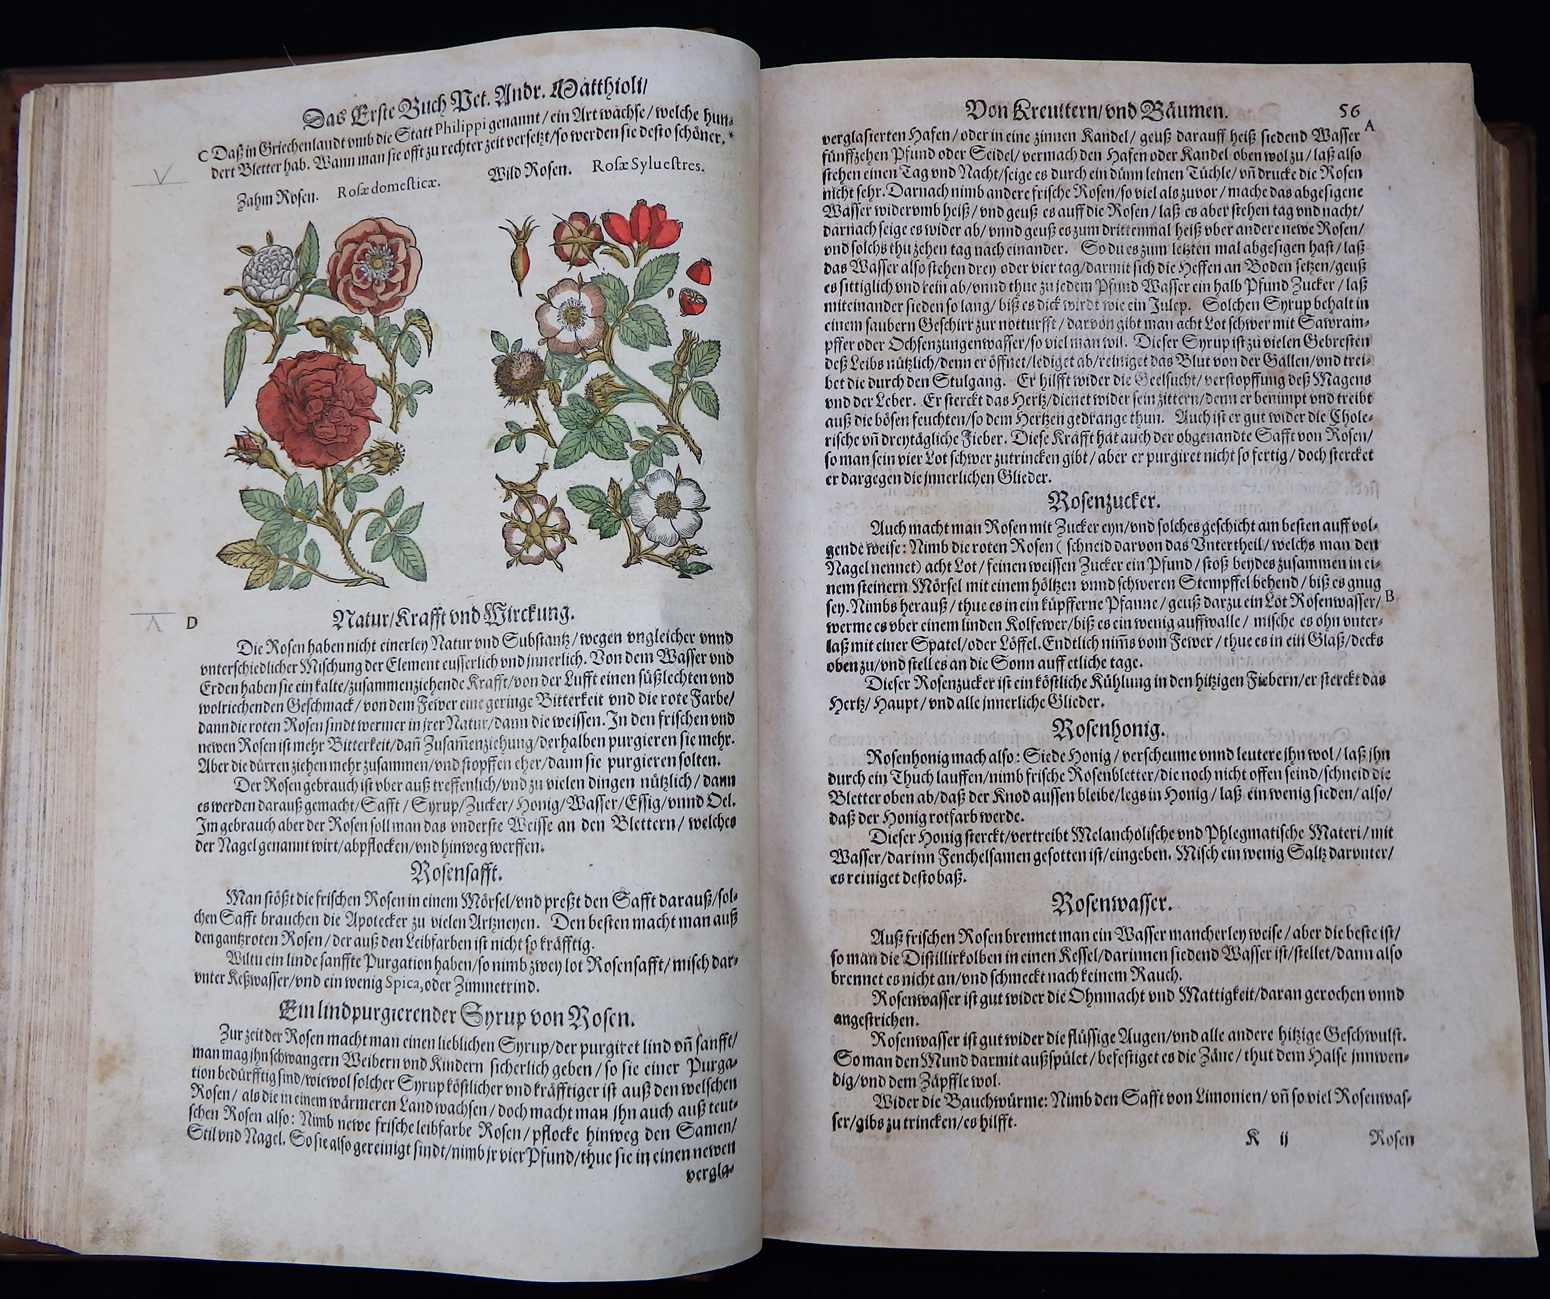 Das Erste Buch Pet. Andr. Matthioli/
C Daß in Griechenlandt vmb die Statt Philippi genannt / ein Art wachse / welche hun-
dert Bletter hab. Wann man sie offt zu rechter zeit versetzt / so werden sie desto schöner. *
Zahm Rosen. Rosæ domesticæ. Wild Rosen. Rosæ Syluestres.
D Natur / Krafft vnd Wirckung.
Die Rosen haben nicht einerley Natur vnd Substantz / wegen vngleicher vnnd
vnterschiedlicher Mischung der Element eusserlich vnd jnnerlich. Von dem Wasser vnd
Erden haben sie ein kalte / zusammenziehende Krafft / von der Lufft einen süßlechten vnd
wolriechenden Geschmack / von dem Fewer eine geringe Bitterkeit vnd die rote Farbe /
dann die roten Rosen sindt wermer in jrer Natur / dann die weissen. In den frischen vnd
newen Rosen ist mehr Bitterkeit / dañ Zusam̃enziehung / derhalben purgieren sie mehr.
Aber die dürren ziehen mehr zusammen / vnd stopffen eher / dann sie purgieren solten.
Der Rosen gebrauch ist vber auß treffenlich / vnd zu vielen dingen nützlich / dann
es werden darauß gemacht / Safft / Syrup / Zucker / Honig / Wasser / Essig / vnnd Oel.
Im gebrauch aber der Rosen soll man das vnderste Weisse an den Blettern / welches
der Nagel genannt wirt / abpflocken / vnd hinweg werffen.
Rosensafft.
Man stößt die frischen Rosen in einem Mörsel / vnd preßt den Safft darauß / sol-
chen Safft brauchen die Apotecker zu vielen Artzneyen. Den besten macht man auß
den gantzroten Rosen / der auß den Leibfarben ist nicht so kräfftig.
Wiltu ein linde sanffte Purgation haben / so nimb zwey lot Rosensafft / misch dar-
vnter Keßwasser / vnd ein wenig Spica, oder Zimmetrind.
Ein lindpurgierender Syrup von Rosen.
Zur zeit der Rosen macht man einen lieblichen Syrup / der purgiret lind vñ sanfft /
man mag jhn schwangern Weibern vnd Kindern sicherlich geben / so sie einer Purga-
tion bedürfftig sind / wiewol solcher Syrup köstlicher vnd kräfftiger ist auß den welschen
Rosen / als die in einem wärmeren Land wachsen / doch macht man jhn auch auß teut-
schen Rosen also: Nimb newe frische leibfarbe Rosen / pflocke hinweg den Samen /
Stil vnd Nagel. So sie also gereinigt sindt / nimb jr vier Pfund / thue sie in einen newen
vergla-
Von Kreuttern / vnd Bäumen. 56
verglasierten Hafen / oder in eine zinnen Kandel / geuß darauff heiß siedend Wasser A
fünffzehen Pfund oder Seidel / vermach den Hafen oder Kandel oben wol zu / laß also
stehen einen Tag vnd Nacht / seige es durch ein dünn leinen Tüchle / vñ drucke die Rosen
nicht sehr. Darnach nimb andere frische Rosen / so viel als zuvor / mache das abgesigene
Wasser widervmb heiß / vnd geuß es auff die Rosen / laß es aber stehen tag vnd nacht /
darnach seige es wider ab / vnnd geuß es zum drittenmal heiß vber andere newe Rosen /
vnd solchs thu zehen tag nach einander. So du es zum letzten mal abgesigen hast / laß
das Wasser also stehen drey oder vier tag / darmit sich die Heffen an Boden setzen / geuß
es sittiglich vnd rein ab / vnnd thue zu jedem Pfund Wasser ein halb Pfund Zucker / laß
miteinander sieden so lang / biß es dick wirdt wie ein Julep. Solchen Syrup behalt in
einem saubern Geschirr zur notturfft / darvon gibt man acht Lot schwer mit Sawram-
pffer oder Ochsenzungenwasser / so viel man wil. Dieser Syrup ist zu vielen Gebresten
deß Leibs nützlich / denn er öffnet / lediget ab / reiniget das Blut von der Gallen / vnd trei-
bet die durch den Stulgang. Er hilfft wider die Geelsucht / verstopffung deß Magens
vnd der Leber. Er sterckt das Hertz / dienet wider sein zittern / denn er benimpt vnd treibt
auß die bösen feuchten / so dem Hertzen gedrange thun. Auch ist er gut wider die Chole-
rische vñ dreytägliche Fieber. Diese Krafft hat auch der obgenandte Safft von Rosen /
so man sein vier Lot schwer zutrincken gibt / aber er purgiret nicht so fertig / doch stercket
er dargegen die jnnerlichen Glieder.
Rosenzucker.
Auch macht man Rosen mit Zucker eyn / vnd solches geschicht am besten auff vol-
gende weise: Nimb die roten Rosen ( schneid darvon das Vntertheil / welchs man den
Nagel nennet) acht Lot / feinen weissen Zucker ein Pfund / stoß beydes zusammen in ei-
nem steinern Mörsel mit einem höltzen vnnd schweren Stempffel behend / biß es gnug
sey. Nimbs herauß / thue es in ein küpfferne Pfanne / geuß darzu ein Lot Rosenwasser / B
werme es vber einem linden Kolfewer / biß es ein wenig auffwalle / mische es ohn vnter-
laß mit einer Spatel / oder Löffel. Endtlich nim̃s vom Fewer / thue es in ein Glaß / decks
oben zu / vnd stell es an die Sonn auff etliche tage.
Dieser Rosenzucker ist ein köstliche Kühlung in den hitzigen Fiebern / er sterckt das
Hertz / Haupt / vnd alle jnnerliche Glieder.
Rosenhonig.
Rosenhonig mach also: Siede Honig / verscheume vnnd leutere jhn wol / laß jhn
durch ein Thuch lauffen / nimb frische Rosenbletter / die noch nicht offen seind / schneid die
Bletter oben ab / daß der Knod aussen bleibe / legs in Honig / laß ein wenig sieden / also /
daß der Honig rotfarb werde.
Dieser Honig sterckt / vertreibt Melancholische vnd Phlegmatische Materi / mit
Wasser / darinn Fenchelsamen gesotten ist / eingeben. Misch ein wenig Saltz darvnter /
es reiniget desto baß.
Rosenwasser.
Auß frischen Rosen brennet man ein Wasser mancherley weise / aber die beste ist /
so man die Distillirkolben in einen Kessel / darinnen siedend Wasser ist / stellet / dann also
brennet es nicht an / vnd schmeckt nach keinem Rauch.
Rosenwasser ist gut wider die Ohnmacht vnd Mattigkeit / daran gerochen vnnd
angestrichen.
Rosenwasser ist gut wider die flüssige Augen / vnd alle andere hitzige Geschwulst.
So man den Mund darmit außspület / befestiget es die Zäne / thut dem Halse jnnwen-
dig / vnd dem Zäpffle wol.
Wider die Bauchwürme: Nimb den Safft von Limonien / vñ so viel Rosenwas-
ser / gibs zu trincken / es hilfft.
K ij Rosen